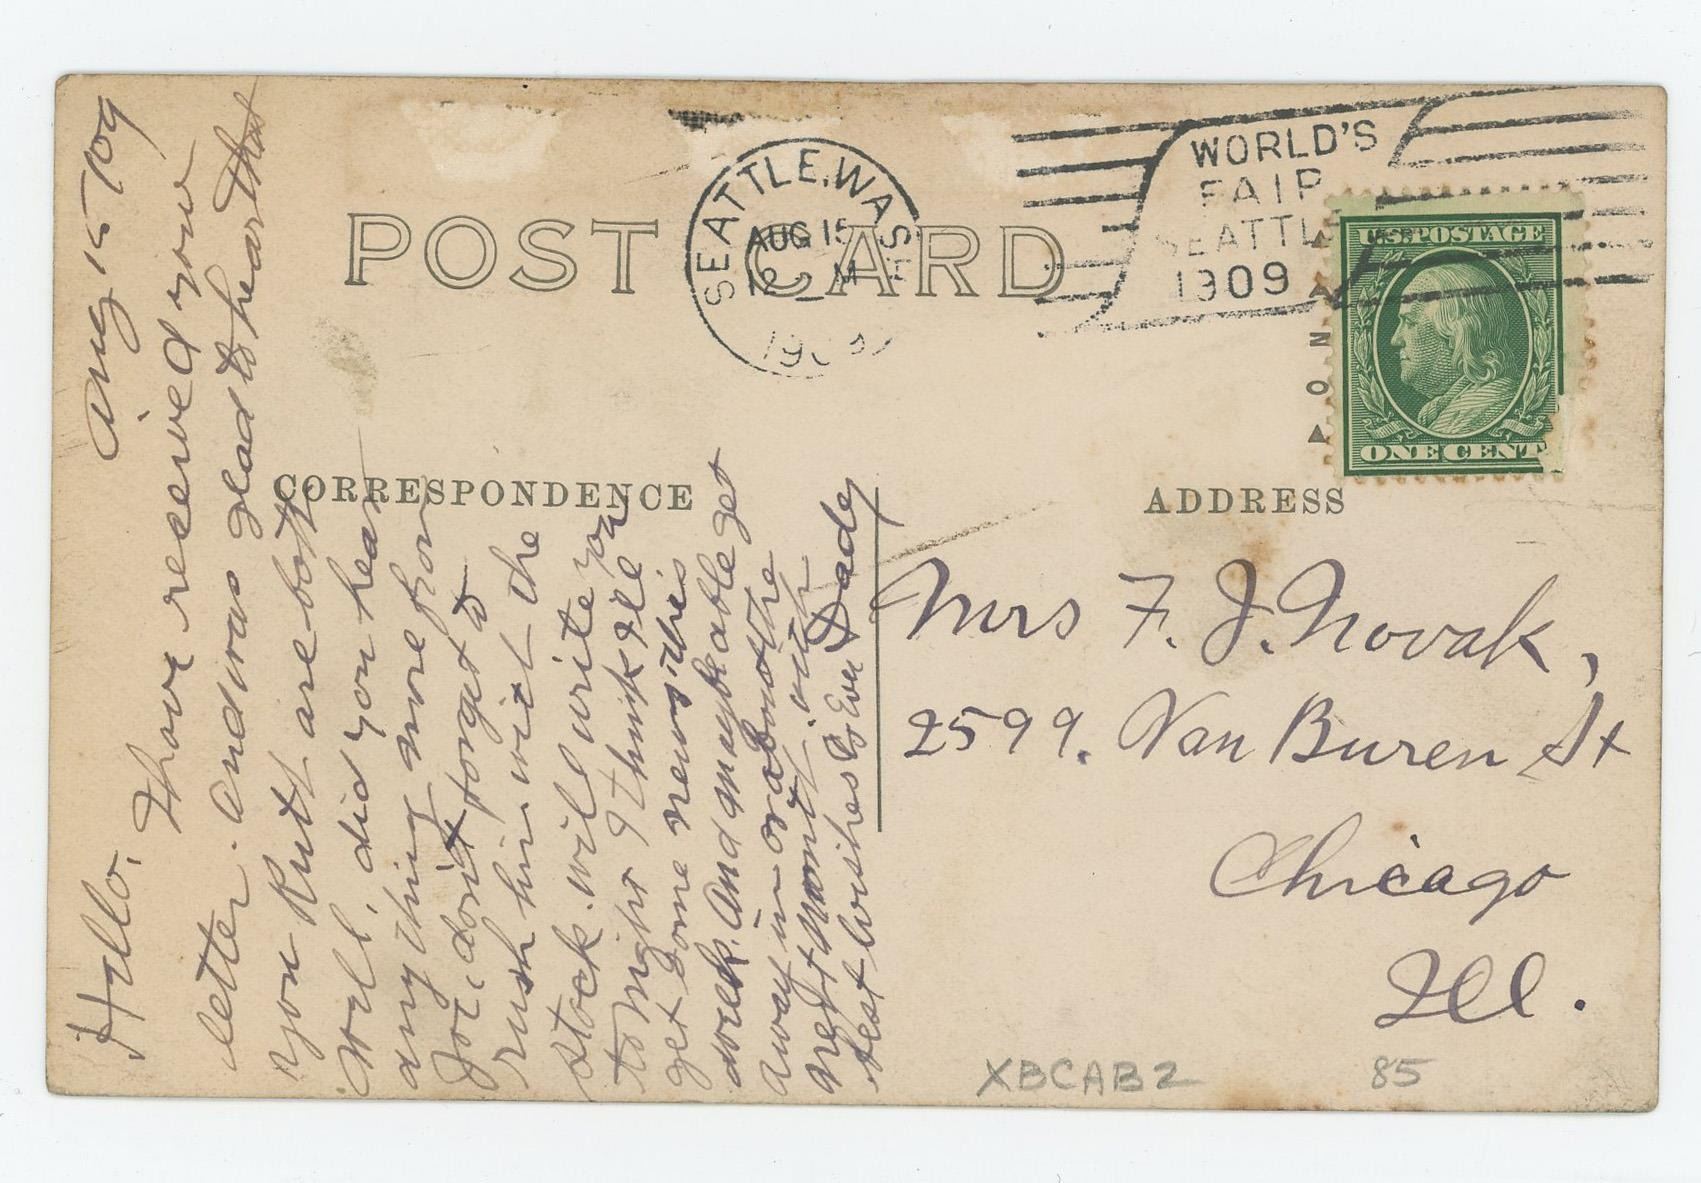 POST CARD
SEATTLE, WASH
AUG 15
12 M
1909
WORLD'S
FAIR
SEATTLE
1909
U.S. POSTAGE
ONE CENT
AZO
CORRESPONDENCE
ADDRESS
Aug 15-'09
Hello,
I have received your
letter. And was glad to hear that
you & Ruth are both
well, did you hear
any thing more from
Joe, don't forget to
rush him with the
stock. will write you
to night I think I'll
get some news this
week. And maybe able get
away in or about the
next month. with
best wishes as Ever Dady
Mrs F. J. Novak,
2599. Van Buren St
Chicago
Ill.
XBCAB2
85